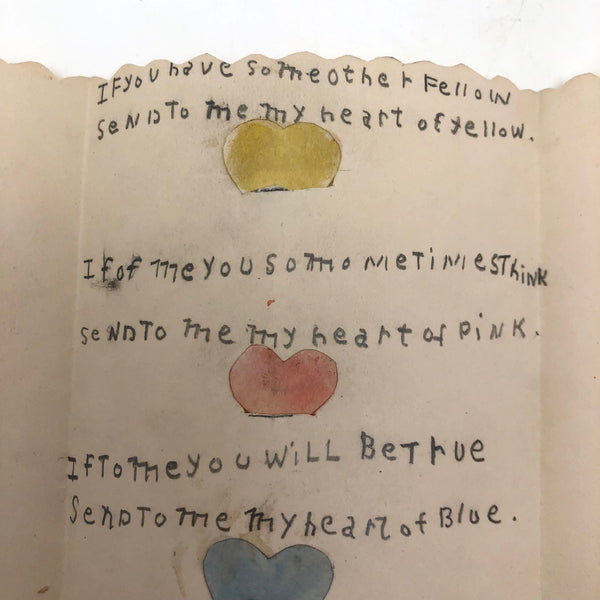 IF you have some other Fellow
SeND To me my heart of yellow.
If of me you somometimes Think
seND To me my heart of PiNK.
If To me you WiLL Be True
SenD To me my heart of Blue.